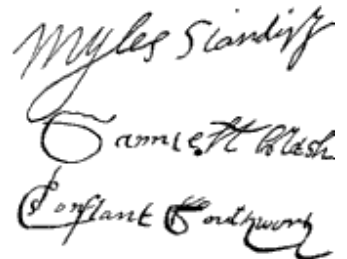 Myles Standish
Samuell Nash
Constant Southworth